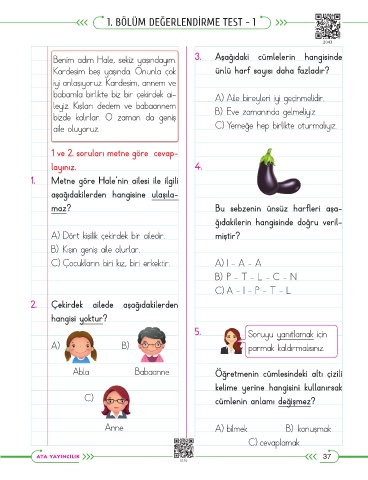 1. BÖLÜM DEĞERLENDİRME TEST - 1
Benim adım Hale, sekiz yaşındayım.
Kardeşim beş yaşında. Onunla çok
iyi anlaşıyoruz. Kardeşim, annem ve
babamla birlikte biz bir çekirdek ai-
leyiz. Kışları dedem ve babaannem
bizde kalırlar. O zaman da geniş
aile oluyoruz.
1 ve 2. soruları metne göre cevap-
layınız.
1. Metne göre Hale'nin ailesi ile ilgili
aşağıdakilerden hangisine ulaşıla-
maz?
A) Dört kişilik çekirdek bir ailedir.
B) Kışın geniş aile olurlar.
C) Çocukların biri kız, biri erkektir.
2. Çekirdek ailede aşağıdakilerden
hangisi yoktur?
A)
B)
Abla
Babaanne
C)
Anne
3. Aşağıdaki cümlelerin hangisinde
ünlü harf sayısı daha fazladır?
A) Aile bireyleri iyi geçinmelidir.
B) Eve zamanında gelmeliyiz.
C) Yemeğe hep birlikte oturmalıyız.
4.
Bu sebzenin ünsüz harfleri aşa-
ğıdakilerin hangisinde doğru veril-
miştir?
A) I - A - A
B) P - T - L - C - N
C) A - I - P - T - L
5. Soruyu yanıtlamak için
parmak kaldırmalısınız.
Öğretmenin cümlesindeki altı çizili
kelime yerine hangisini kullanırsak
cümlenin anlamı değişmez?
A) bilmek
B) konuşmak
C) cevaplamak
ATA YAYINCILIK
37